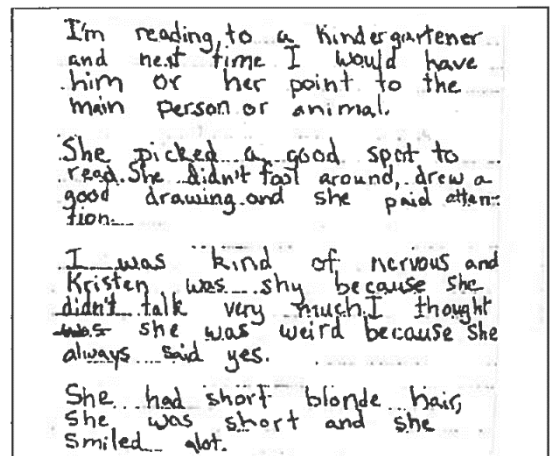 I'm reading to a kindergartener
and next time I would have
him or her point to the
main person or animal.
She picked a good spot to
read. She didn't fool around, drew a
good drawing and she paid atten-
tion.
I was kind of nervous and
Kristen was shy because she
didn't talk very much. I thought
was she was weird because she
always said yes.
She had short blonde hair,
she was short and she
smiled alot.